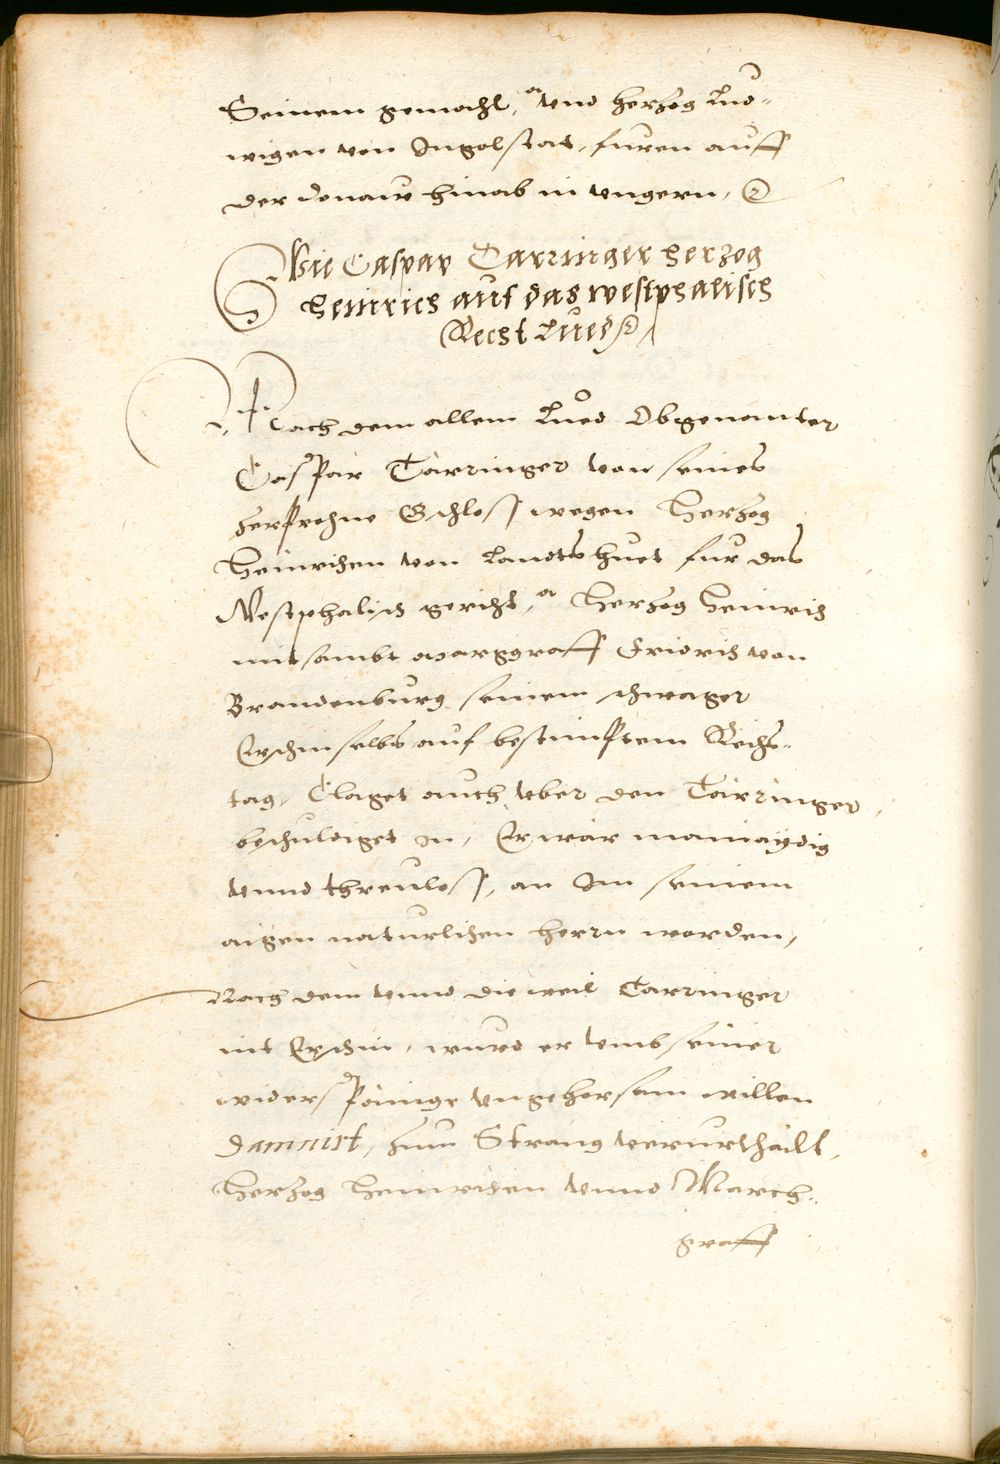 Seinem gemachl, und herzog Lud-
wigen von Ingolstat, furen auff
der donaw hinab in ungern,
Wie Caspar Tarringer herzog
heinrich auf das westphalisch
Recht Lued
Nach dem allem Lued Obgenanter
Caspar Tarringer von seines
zerprohne Schloss wegen Herzog
Heinrichen von Landtshuet fur das
Westphalisch gericht, Herzog Heinrich
mitsambt marggraff Fridrich von
Brandenburg seinem schwager
Erschin selbs auf bestimptem Rechs-
tag, Claget auch uber den Tarringer,
beschuldiget In, Er wär mainaydig
vnnd threuloss, an Im seinem
aigen naturlichen herrn worden,
Nach dem vnnd die weil Tarringer
nit Erschin, wurd er vmb seiner
widerspänige ungehorsam willen
Damnirt, zum Strang verurthailt,
Herzog Heinrichen vnnd March-
graff